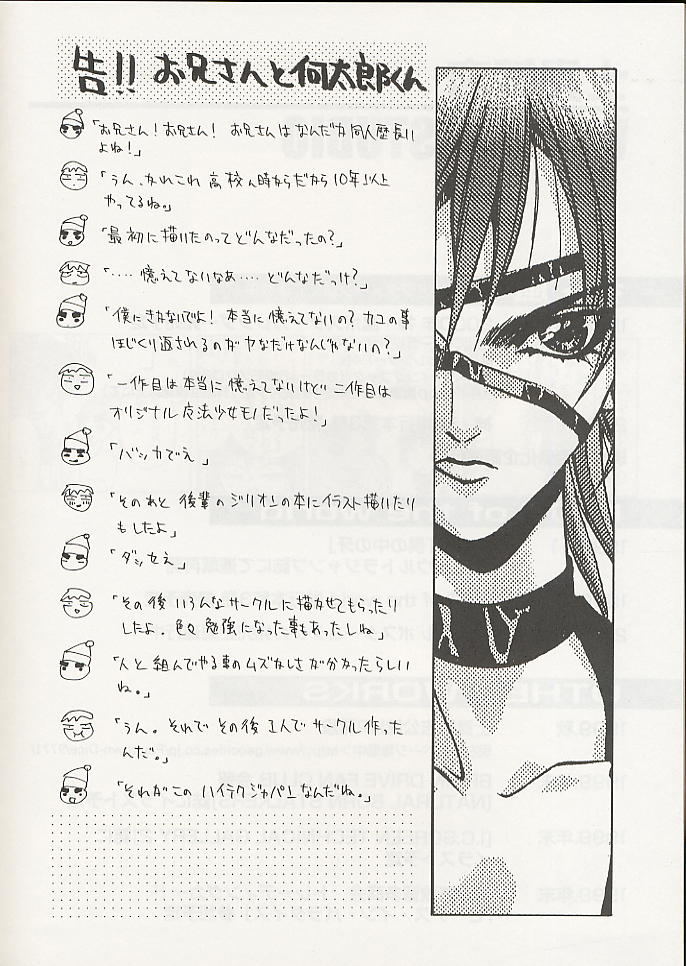 告!! お兄さんと何太郎くん
「お兄さん！お兄さん！ お兄さんはなんだカ同人歴長い
よね！」
「うん、かれこれ 高校ん時からだから 10年以上
やってるね。」
「最初に描いたのって どんなだったの？」
「‥‥憶えてないなあ‥‥ どんなだっけ？」
「僕にきかないでよ！ 本当に憶えてないの？ カコの事
ほじくり返されるのが ヤなだけなんじゃないの？」
「一作目は本当に憶えてないけど 二作目は
オリジナル 魔法少女モノだったよ！」
「バッカでえ」
「そのあと 後輩のジリオンの本にイラスト描いたり
もしたよ」
「ダッセえ」
「その後 いろんなサークルに描かせてもらったり
したよ。色々勉強になった事もあったしね」
「人と組んでやる事のムズかしさが分かったらしい
ね。」
「うん。それで その後 1人で サークル作った
んだ。」
「それがこの ハイテクジャパン なんだね。」